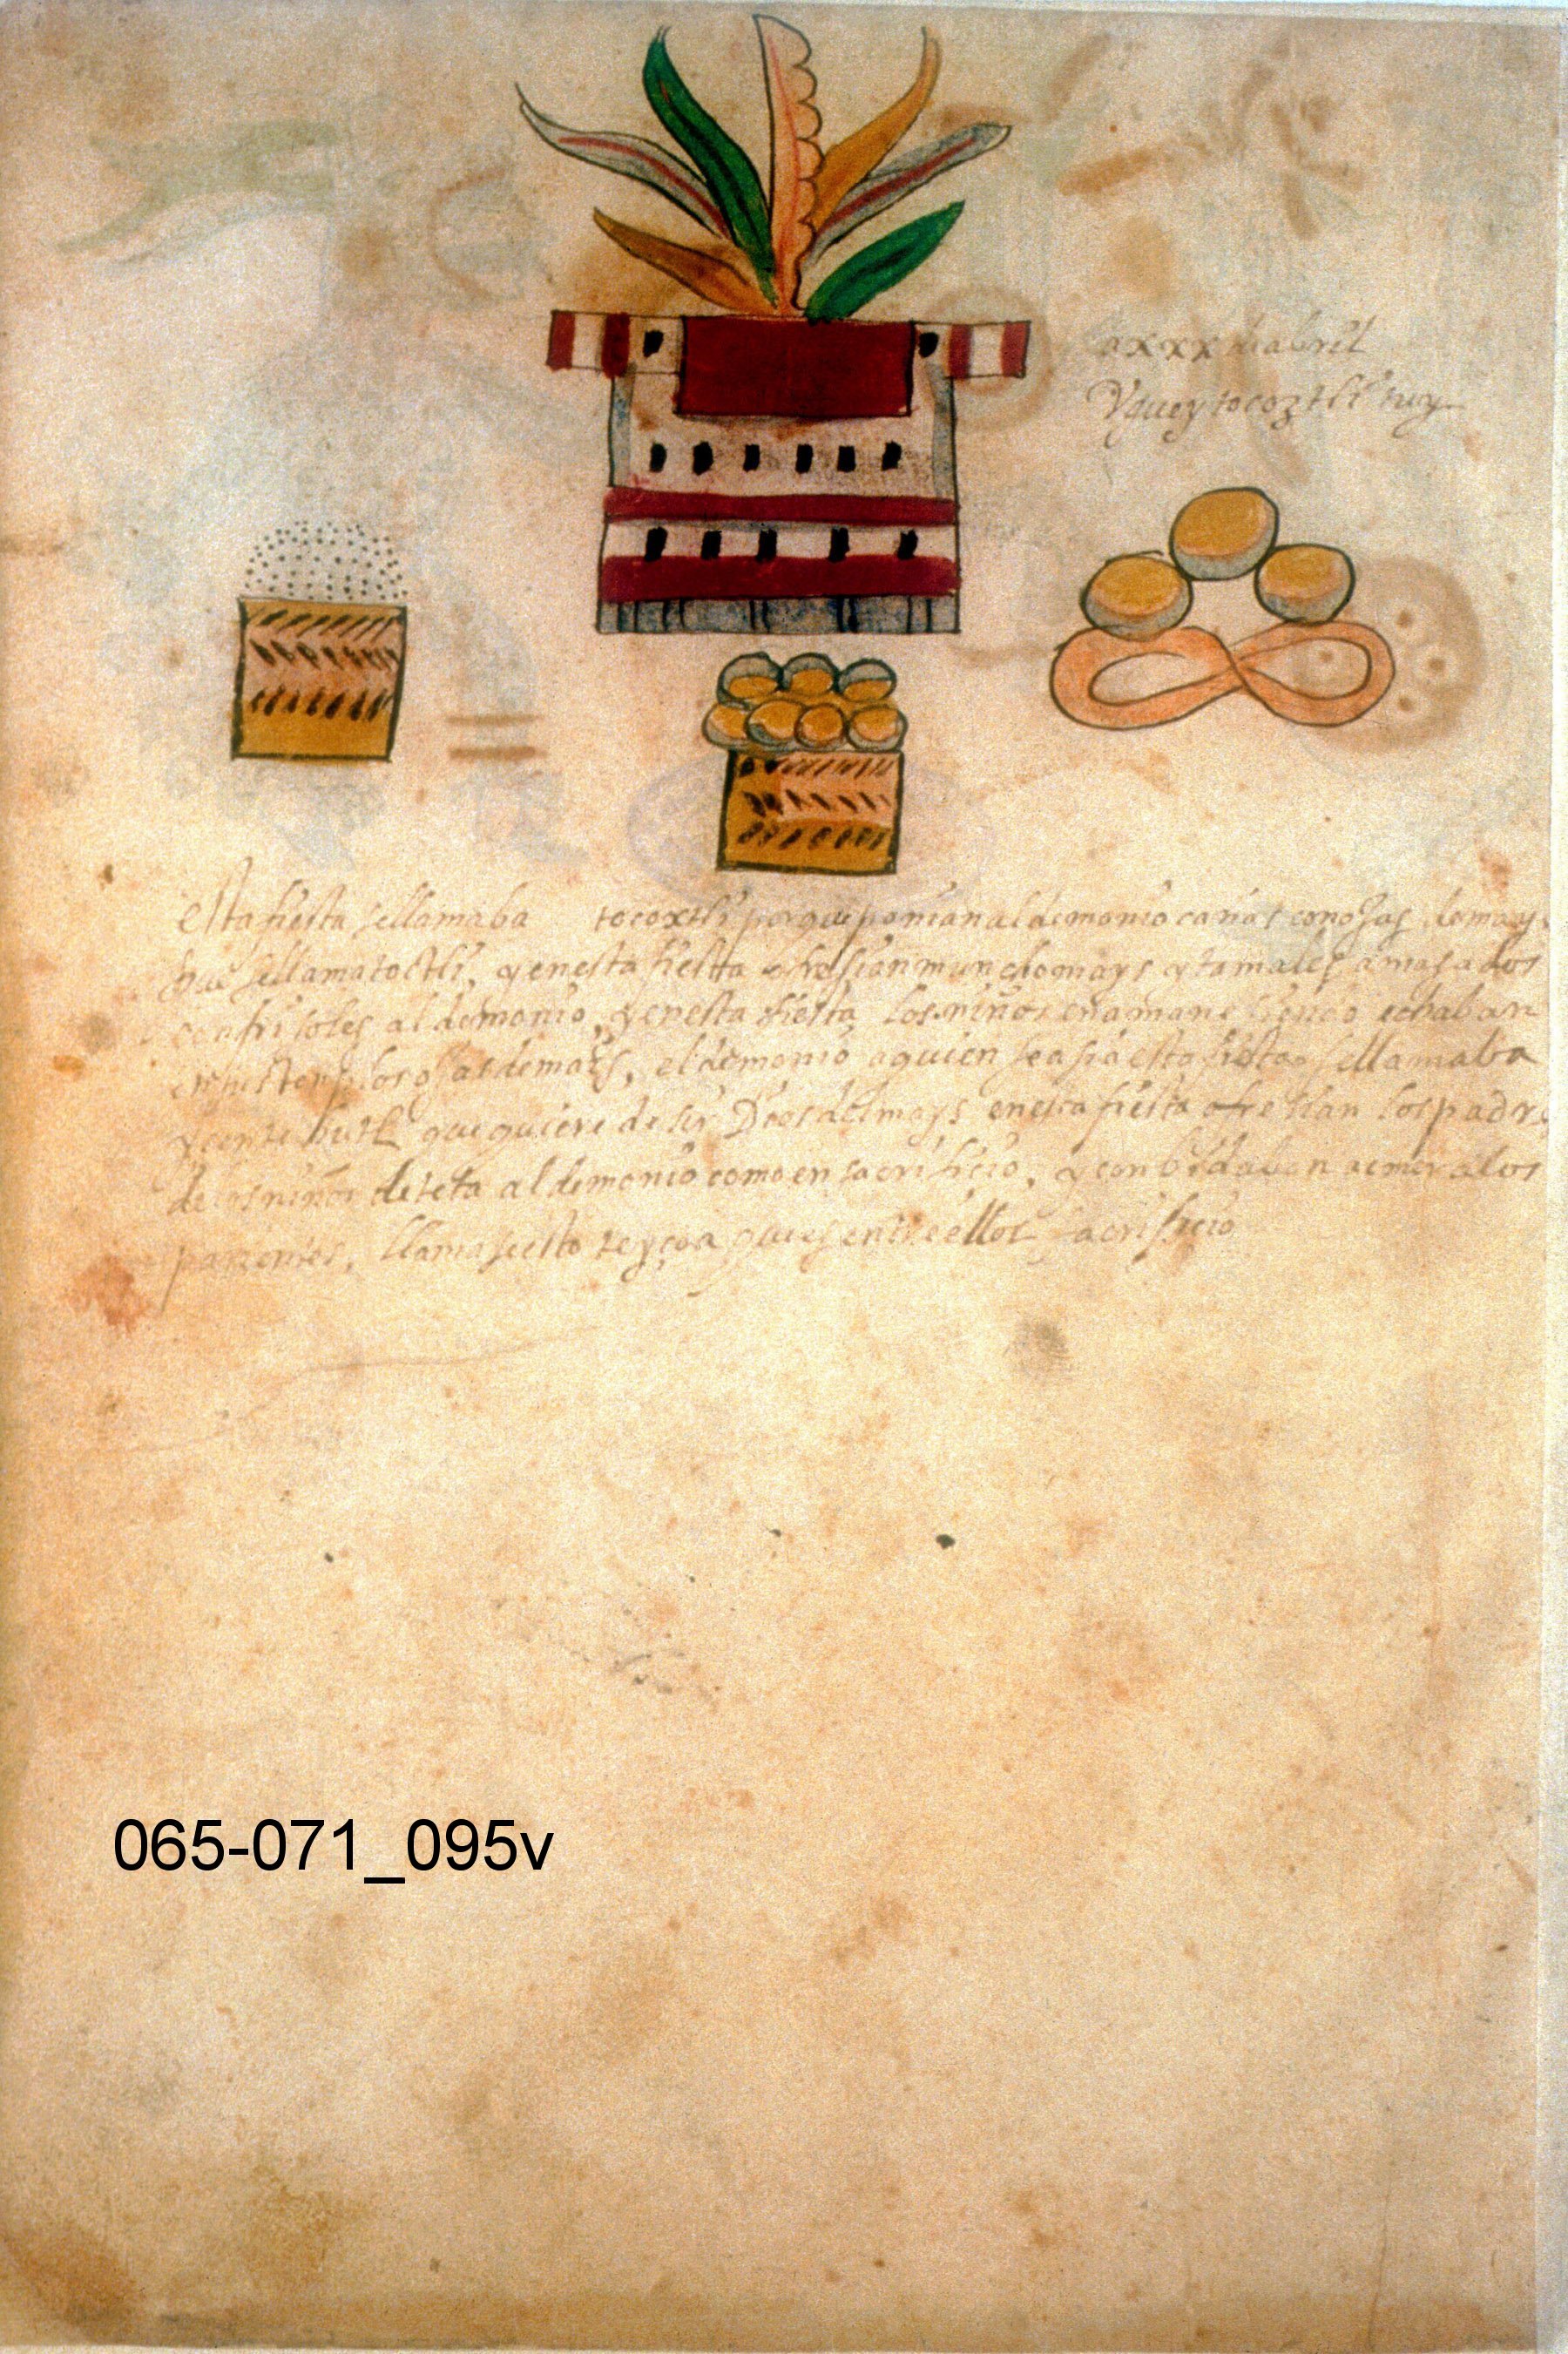 a xxx de abril
Vquey tocoztli huy
esta fiesta sellamaba tocoxtli porque ponian al demonio cañas con ojas de mayz
que sellama toctli, y enesta fiesta ofresian muncho mays y tamales amasados
con frisoles al demonio, y enesta fiesta los niños en amaneciendo echaban
los ojas de mais, el demonio a quien se asia esta fiesta sellamaba
que quiere desir Dios del mays enesta fiesta ofresian los padres
de los niños de teta al demonio como en sacrificio, y conbidaban acomer a los
parientes, llamase esto teyçoa que es entre ellos sacrificio
065-071_095v